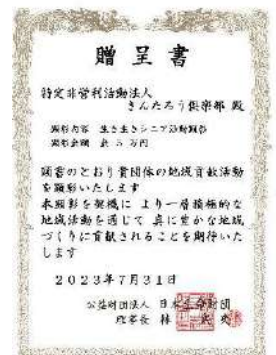 贈呈書
特定非営利活動法人
きんたろう倶楽部 殿
顕彰内容 生き生きシニア活動顕彰
顕彰金額 金 5 万円
顕書のとおり貴団体の地域貢献活動
を顕彰いたします
本顕彰を契機に より一層積極的な
地域活動を通じて 真に豊かな地域
づくりに貢献されることを期待いた
します
2023年7月31日
公益財団法人 日本生命財団
理事長 林